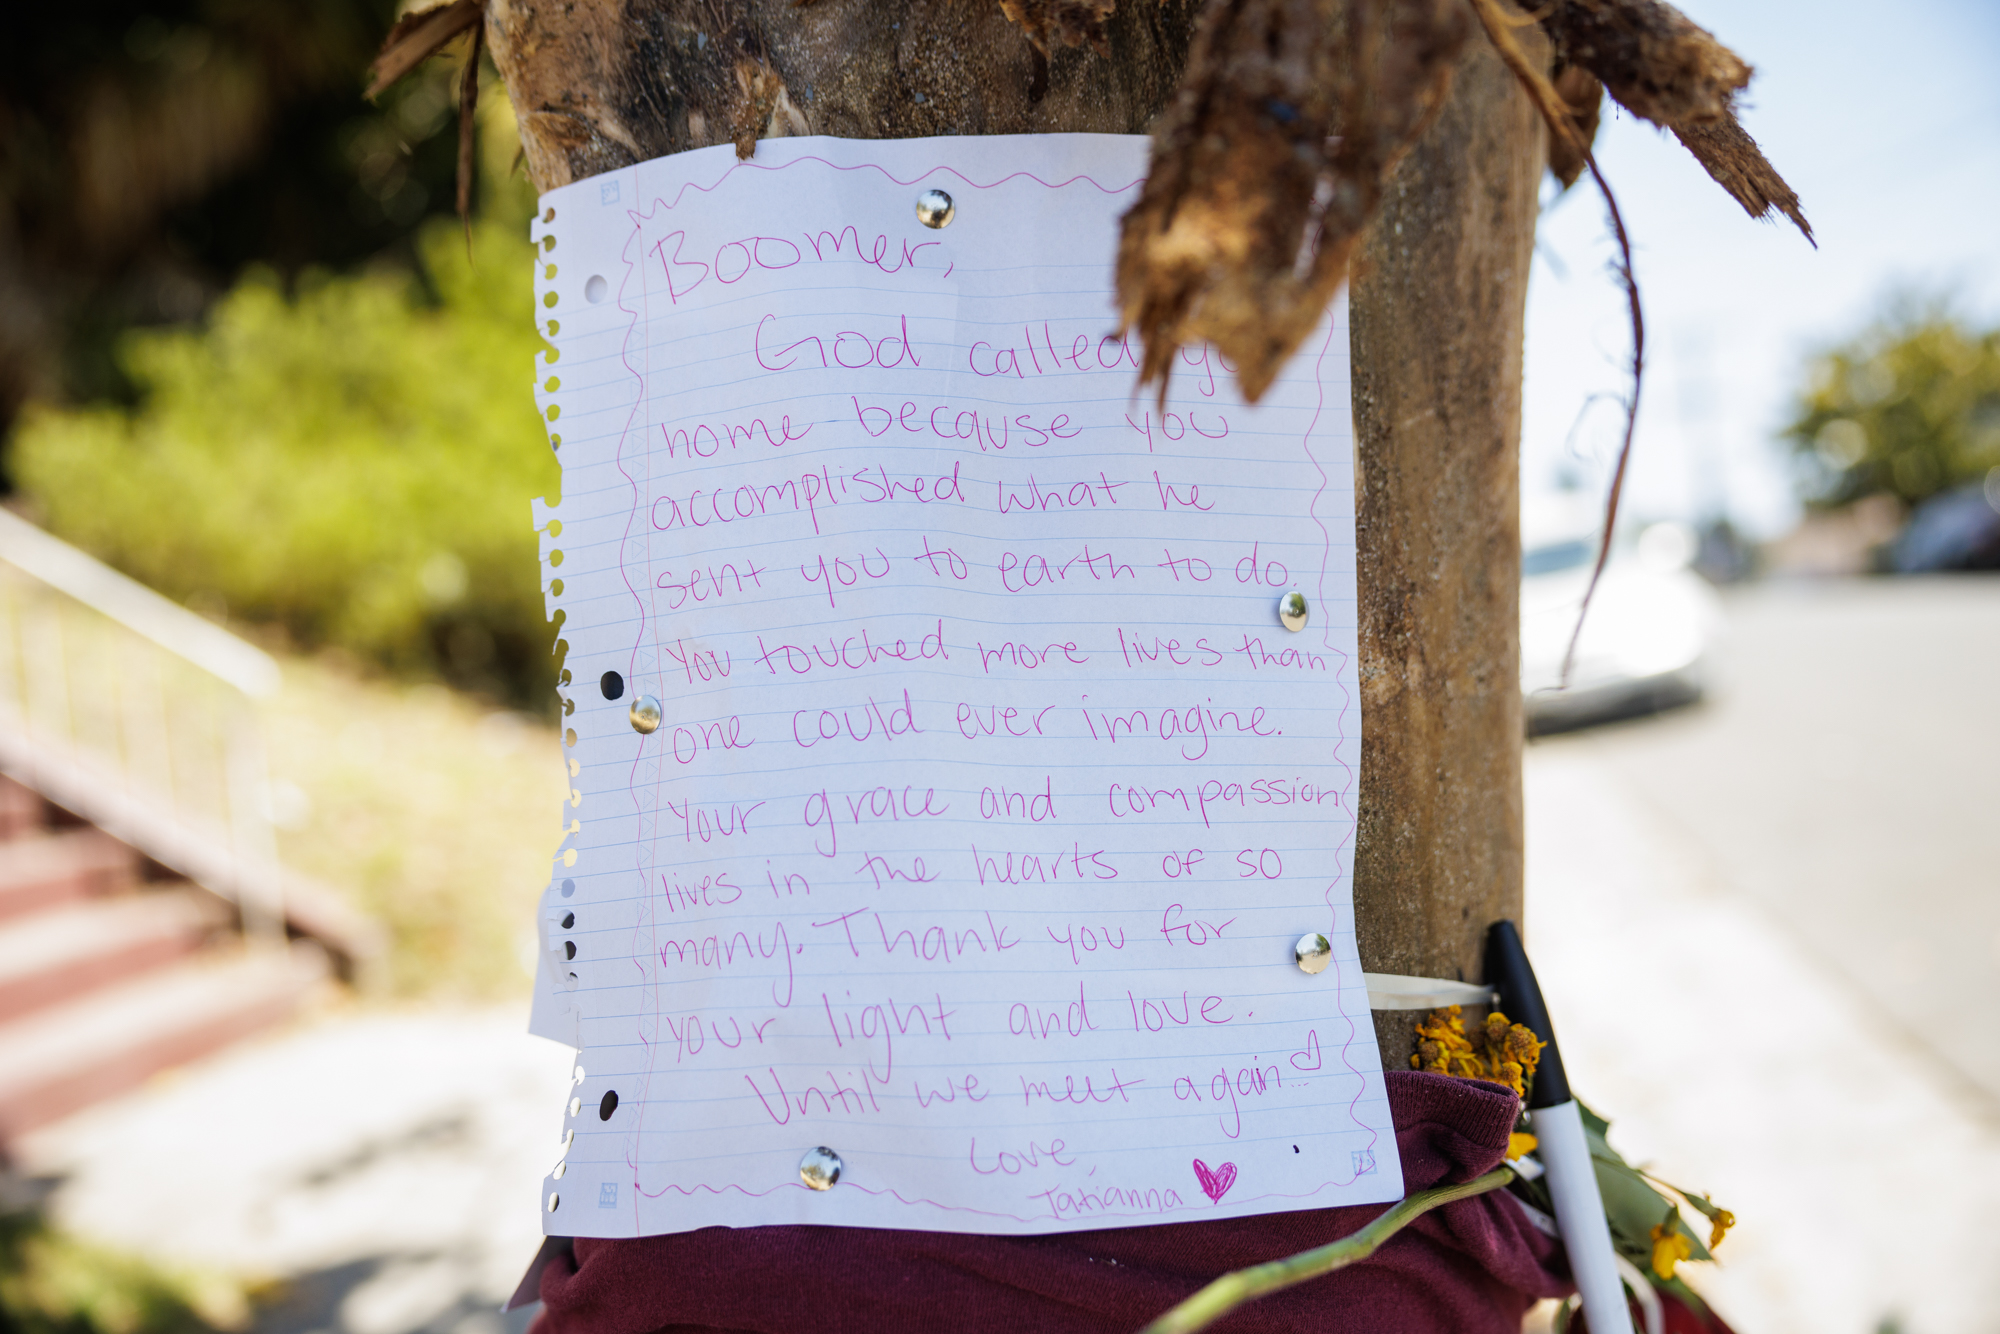 Boomer,
God called yo
home because you
accomplished what he
sent you to earth to do.
You touched more lives than
one could ever imagine.
Your grace and compassion
lives in the hearts of so
many. Thank you for
your light and love.
Until we meet again...
Love,
Tatianna